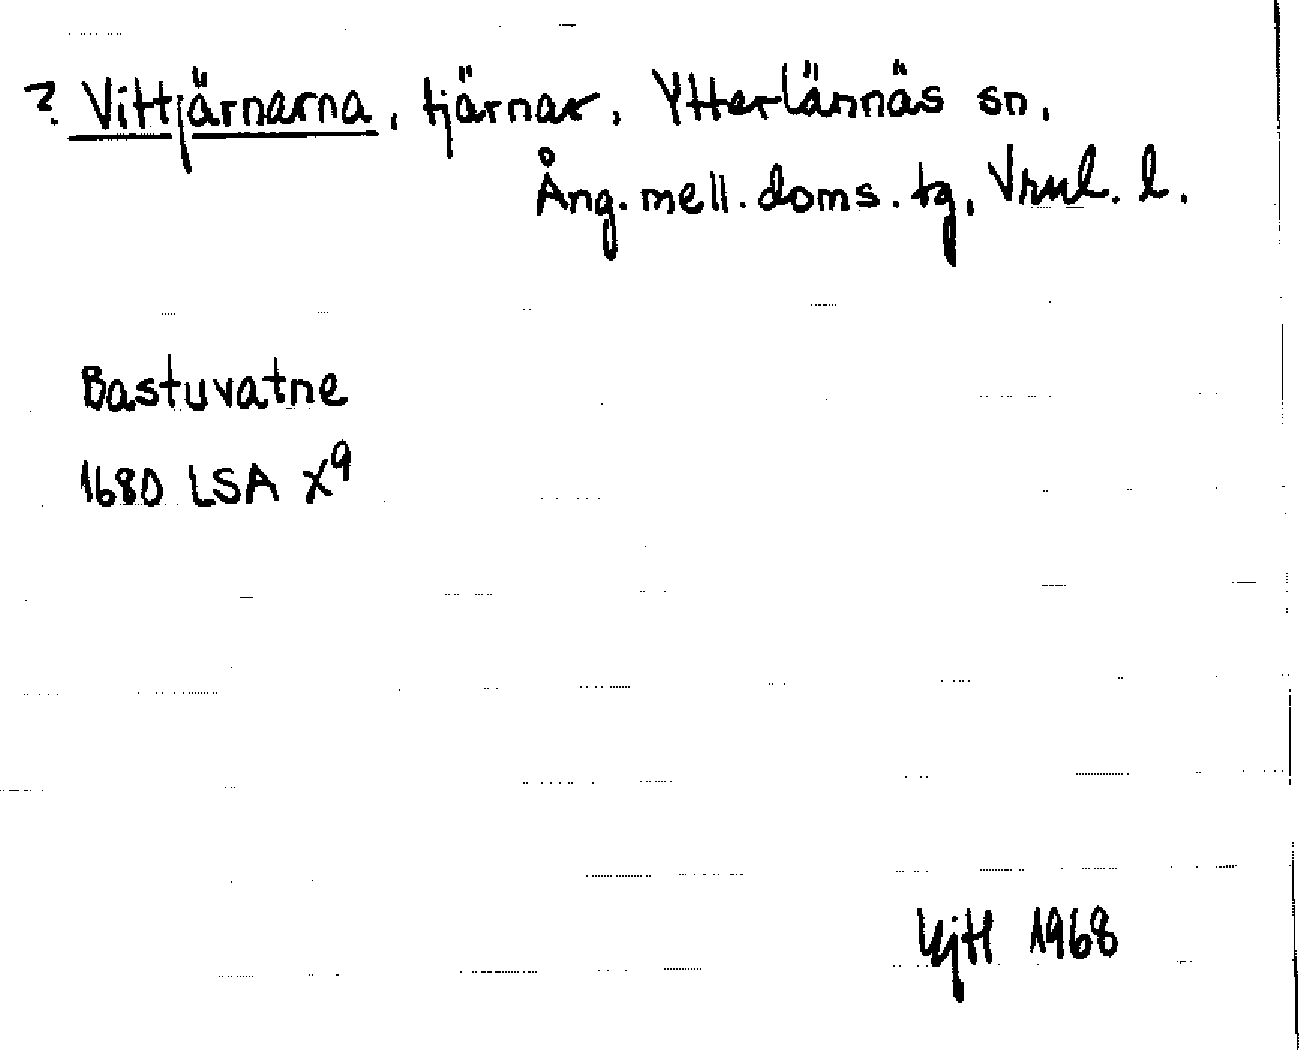 ? Vittjärnarna, tjärnar, Ytterlännäs sn,
Ång. mell. doms. tg, Vrnl. l.
Bastuvatne
1680 LSA X⁹
1968